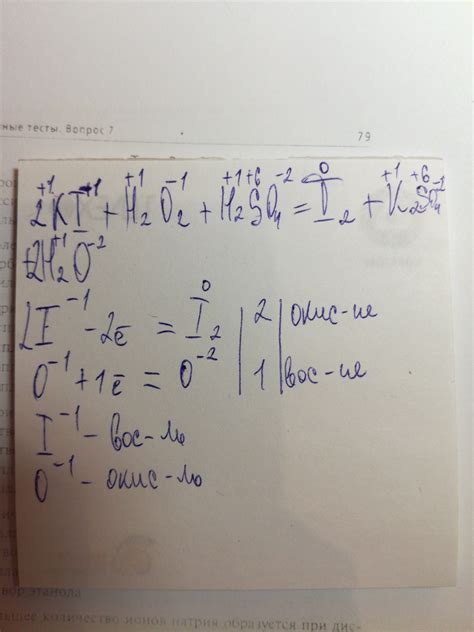 ные тесты. Вопрос 7
79
2K⁺¹I⁺¹ + H₂⁺¹O₂⁻¹ + H₂⁺¹S⁺⁶O₄⁻² = I₂⁰ + K₂⁺¹S⁺⁶O₄⁻²
+2H₂⁺¹O⁻²
2I⁻¹ - 2ē = I₂⁰ | 2 | окис-ие
O⁻¹ + 1ē = O⁻² | 1 | вос-ие
I⁻¹ - вос-ль
O⁻¹ - окис-ль
вор этанола
ьшее количество ионов натрия образуется при дис-